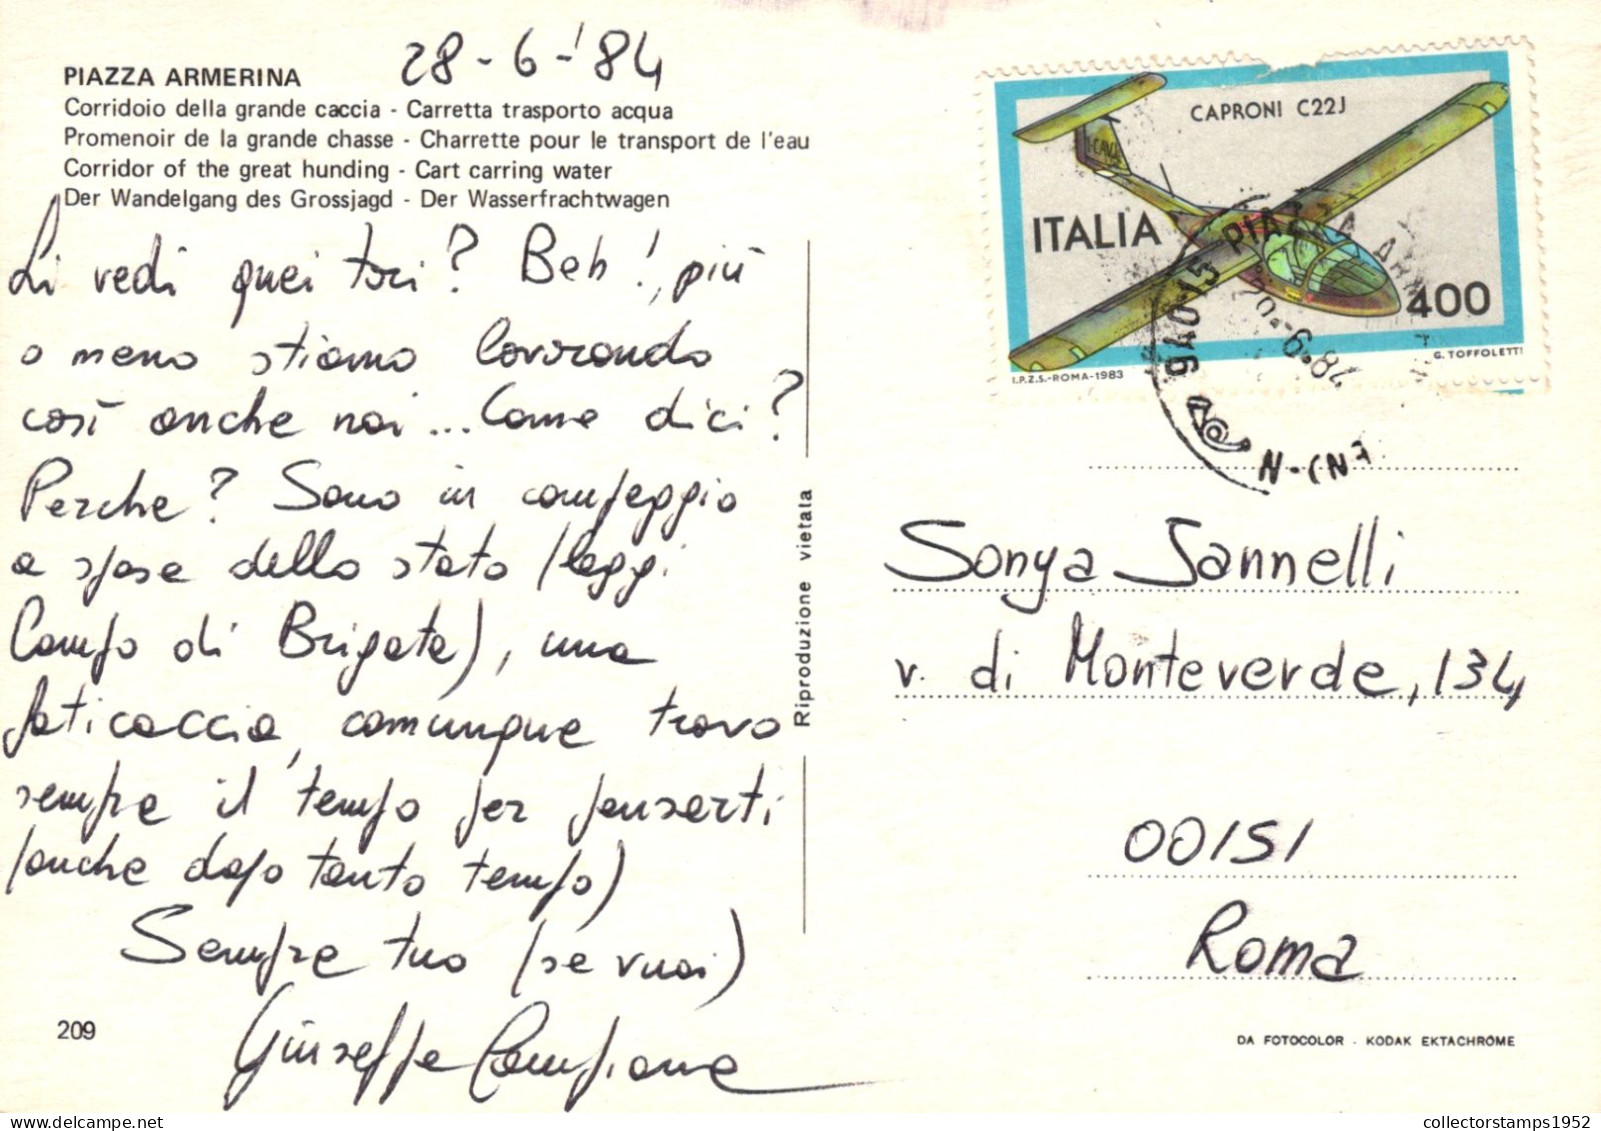 PIAZZA ARMERINA
28-6-'84
Corridoio della grande caccia - Carretta trasporto acqua
Promenoir de la grande chasse - Charrette pour le transport de l'eau
Corridor of the great hunding - Cart carring water
Der Wandelgang des Grossjagd - Der Wasserfrachtwagen
Li vedi quei tori? Beh!, più
o meno stiamo lavorando
così anche noi... Come dici?
Perche? Sono in campeggio
a spese dello stato (leggi
Campo di Brigata), una
faticaccia, comunque trovo
sempre il tempo per pensarti
(anche dopo tanto tempo)
Sempre tuo (se vuoi)
Giuseppe Campione
209
Riproduzione vietata
CAPRONI C22J
I-CAVJ
ITALIA
400
I.P.Z.S.-ROMA-1983
G. TOFFOLETTI
94015 PIAZZA ARM
-6-84
Sonya Iannelli
v. di Monteverde, 134
00151
Roma
DA FOTOCOLOR - KODAK EKTACHRÓME
collectorstamps1952